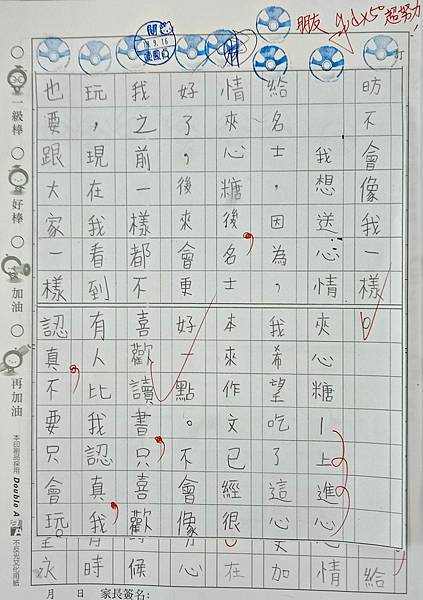 朋友 超努力!
昉不會像我一樣。
我想送心情夾心糖—上進心
給名士,因為,我希望吃了這心
情夾心糖後,名士本來作文已經很
好了,後來會更好一點。不會像
我之前一樣都不喜歡讀書,只喜歡
玩,現在我看到有人比我認真,我
也要跟大家一樣認真,不要只會玩。
給
情
加
在
心
候
時
永
一級棒
好棒
加油
再加油
本印刷品採用 Double A 不反光文化用紙
月 日 家長簽名: